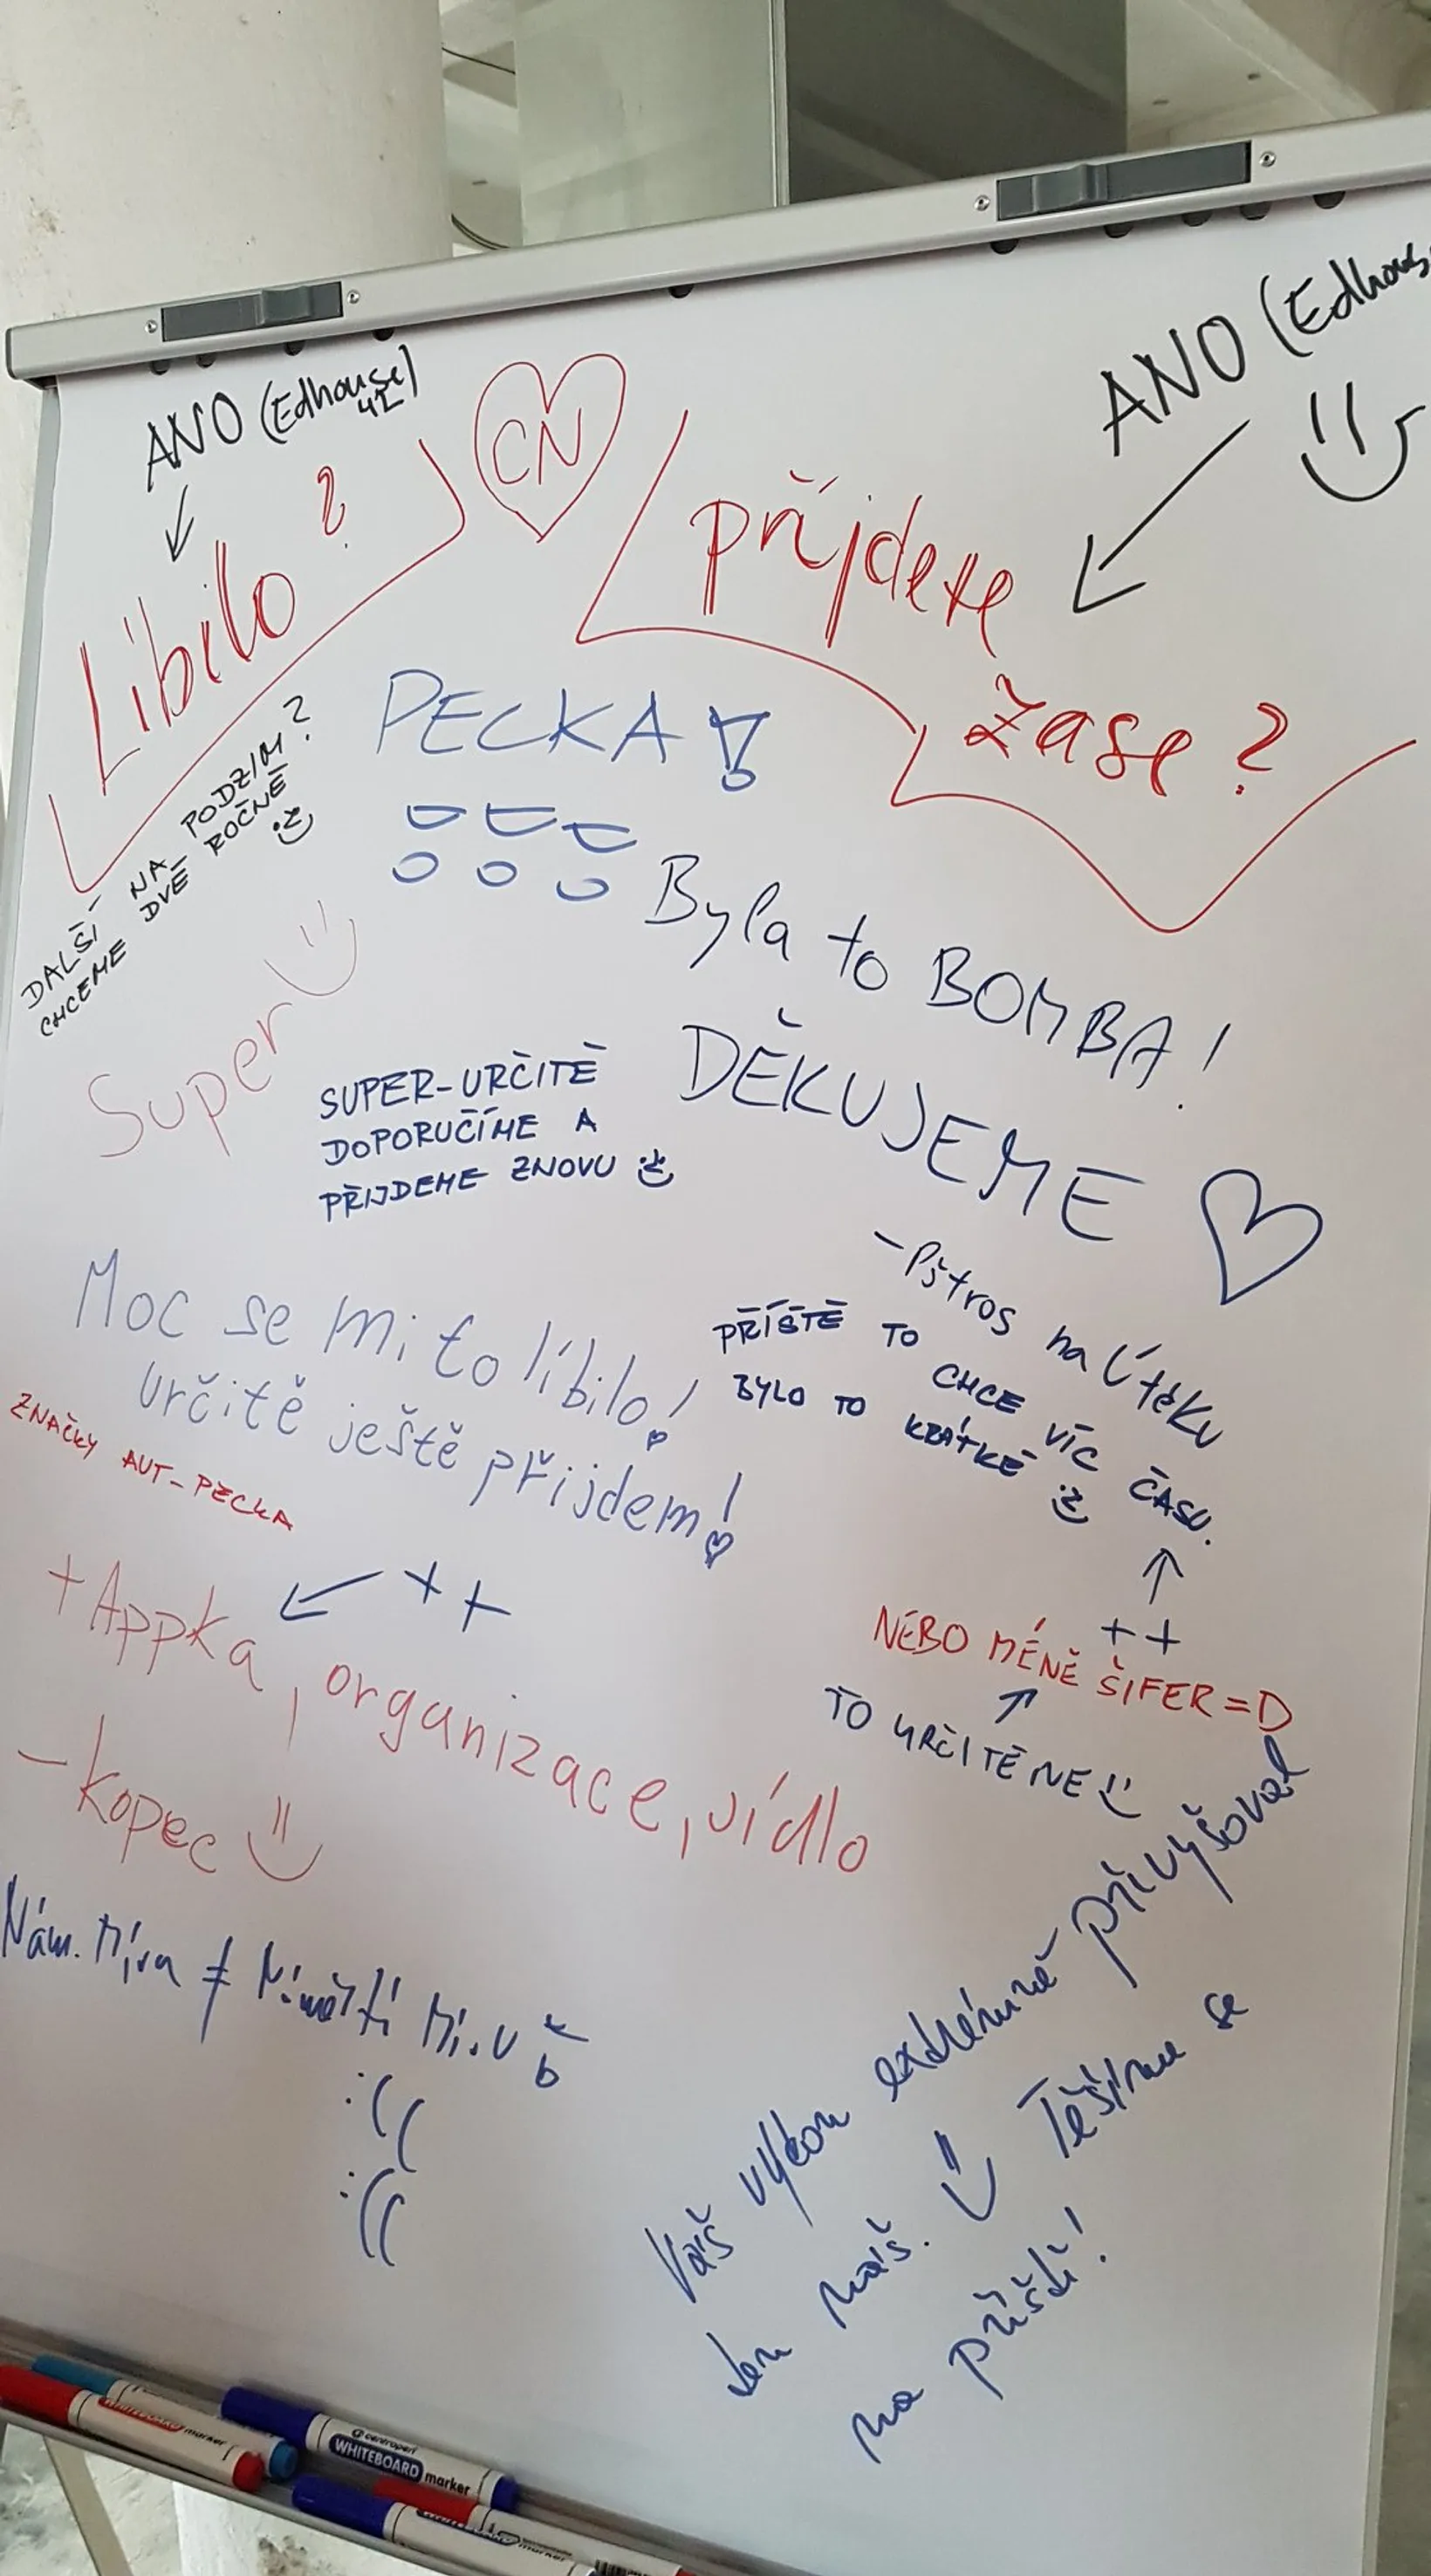 ANO (Edhouse)
ANO (Edhous
CN
Líbilo?
přijdete
zase?
PECKA!
!!!
DALŠÍ NA PODZIM?
CHCEME DVĚ ROČNĚ :)
Byla to BOMBA!
Super
SUPER-URČITĚ
DOPORUČÍME A
PŘIJDEME ZNOVU :)
DĚKUJEME
Moc se mi to líbilo!
určitě ještě přijdem!
- Pštros na útěku
PŘÍŠTĚ TO CHCE VÍC ČASU.
BYLO TO KRÁTKÉ :)
ZNAČKY AUT - PECKA
++
+ Appka, organizace, jídlo
- kopec
++
NEBO MÉNĚ ŠIFER =D
TO URČITĚ NE
Nám. Míra ≠ Náměstí Míru
:((
:((
Váš výkon extrémně převyšoval
ten náš. Těšíme se
na příští!
centropen
WHITEBOARD marker
marker